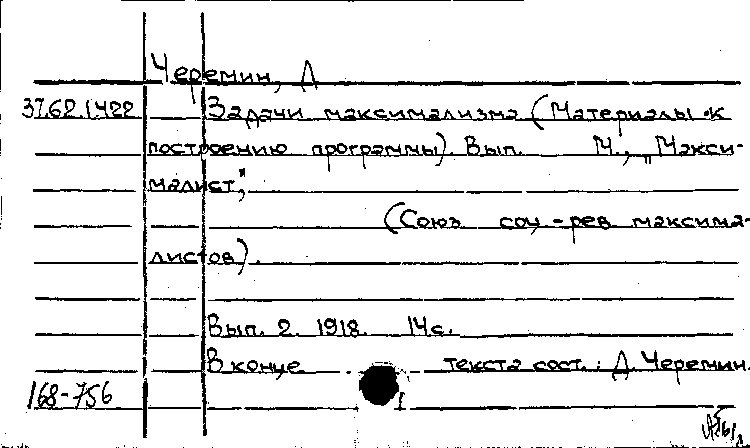 Черемин, Д
37.62.1422 Задачи максимализма (Материалы к
построению программы). Вып. М., „Макси-
малист",
(Союз соц-рев максима-
листов).
Вып. 2. 1918. 14 с.
В конце текста сост.: Д. Черемин.
168-756